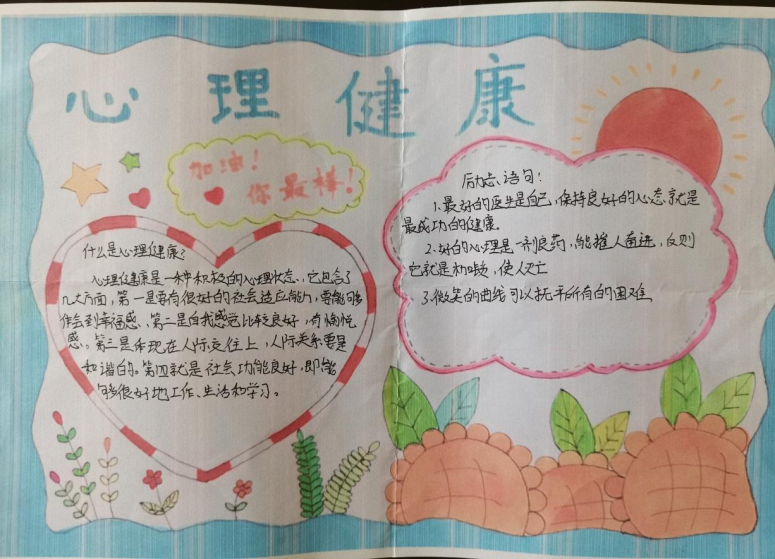 心理健康
加油!
你最棒!
什么是心理健康?
心理健康是一种积极的心理状态,它包含了
几大方面,第一是要有很好的社会适应能力,要能够
体会到幸福感、第二是自我感觉比较良好,有愉悦
感。第三是体现在人际交往上,人际关系要是
和谐的。第四就是社会功能良好,即能
够很好地工作、生活和学习。
励志语句:
1.最好的医生是自己,保持良好的心态就是
最成功的健康。
2.好的心理是一剂良药,能催人奋进,反则
它就是
使人
3.微笑的曲线可以抚平所有的困难